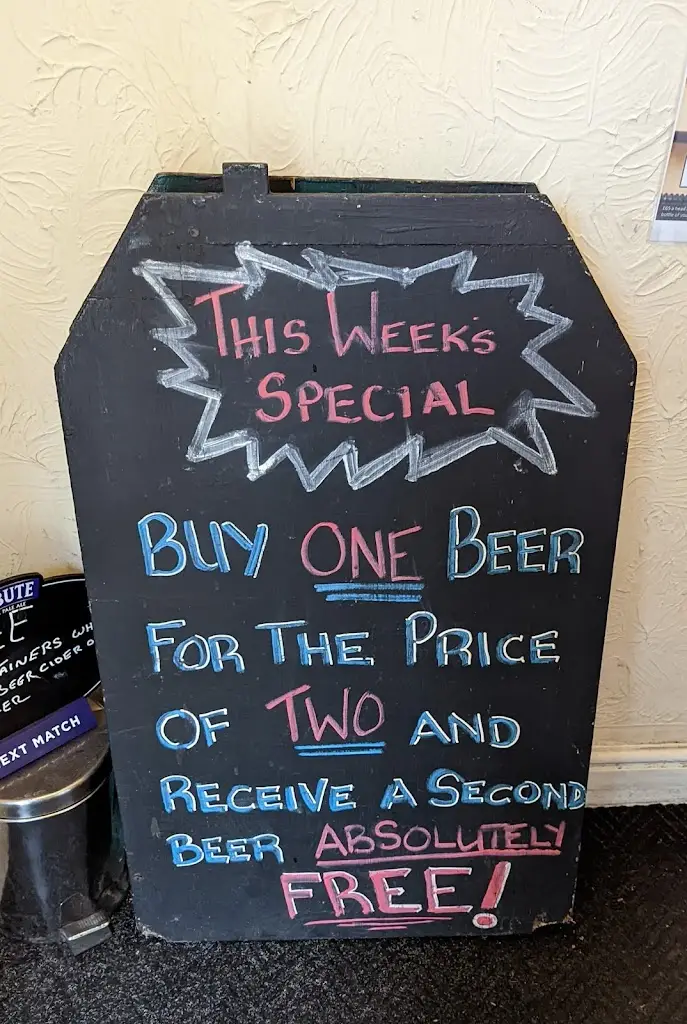 THIS WEEK'S
SPECIAL
BUY ONE BEER
FOR THE PRICE
OF TWO AND
RECEIVE A SECOND
BEER ABSOLUTELY
FREE!
BUTE
PALE ALE
AINERS WH
BEER CIDER O
ER
EXT MATCH